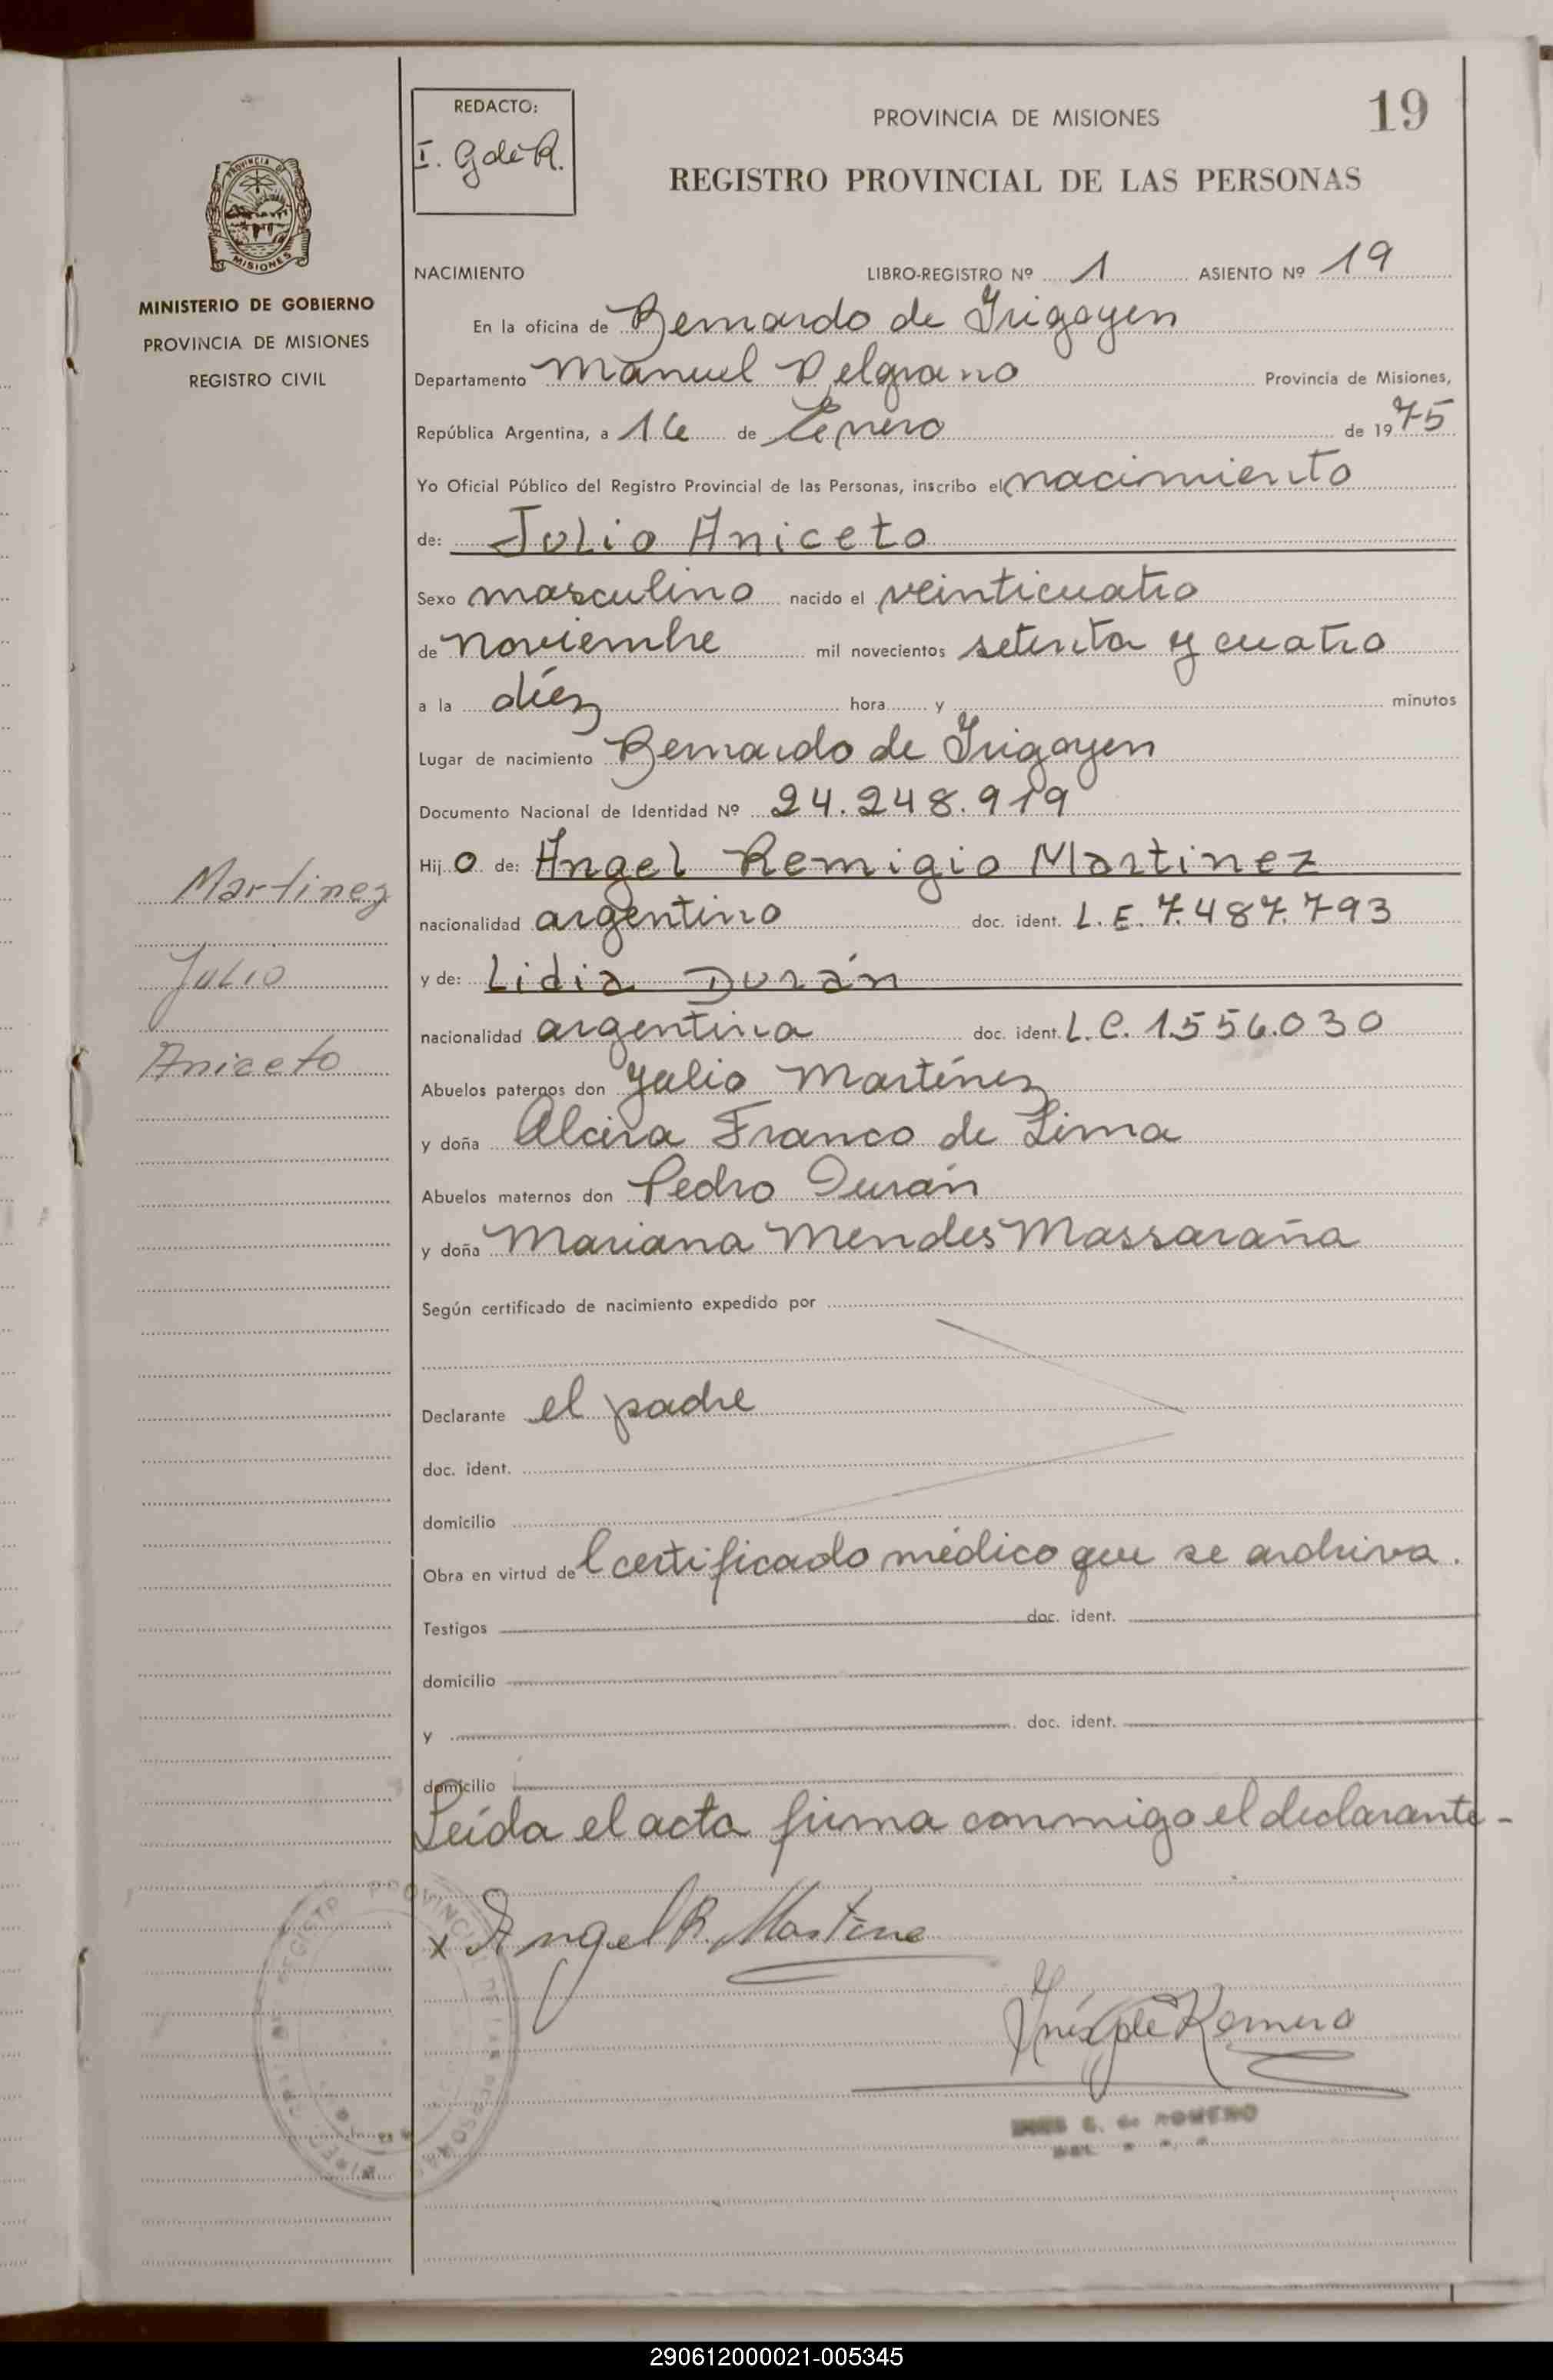 REDACTO:
I. G de R.
PROVINCIA DE MISIONES
19
REGISTRO PROVINCIAL DE LAS PERSONAS
PROVINCIA DE
MISIONES
MINISTERIO DE GOBIERNO
PROVINCIA DE MISIONES
REGISTRO CIVIL
NACIMIENTO LIBRO-REGISTRO Nº 1 ASIENTO Nº 19
En la oficina de Bernardo de Irigoyen
Departamento Manuel Belgrano Provincia de Misiones,
República Argentina, a 16 de Enero de 1975
Yo Oficial Público del Registro Provincial de las Personas, inscribo el nacimiento
de: Julio Aniceto
Sexo masculino nacido el veinticuatro
de noviembre mil novecientos setenta y cuatro
a la diéz hora y minutos
Lugar de nacimiento Bernardo de Irigoyen
Documento Nacional de Identidad Nº 24.248.919
Hijo de: Angel Remigio Martinez
nacionalidad argentino doc. ident. L.E. 7.487.793
y de: Lidia Durán
nacionalidad argentina doc. ident. L.C. 1.556.030
Abuelos paternos don Julio Martínez
y doña Alcira Franco de Lima
Abuelos maternos don Pedro Durán
y doña Mariana Mendes Massaraña
Según certificado de nacimiento expedido por
Declarante el padre
doc. ident.
domicilio
Obra en virtud del certificado médico que se archiva.
Testigos doc. ident.
domicilio
y doc. ident.
domicilio
Leída el acta firma conmigo el declarante-
Martinez
Julio
Aniceto
x Angel R. Martine
Inés G de Romero
INES G. de ROMERO
290612000021-005345